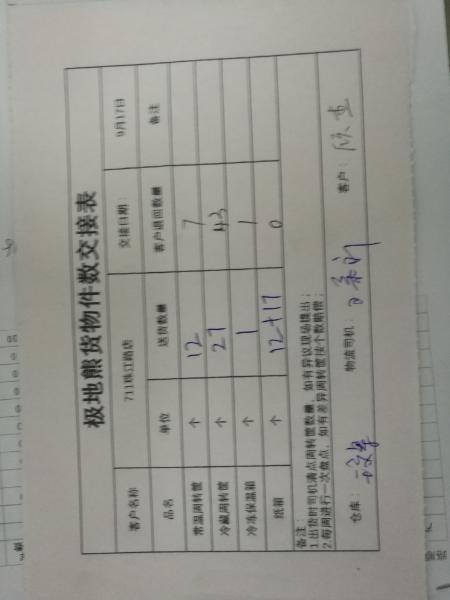 极地熊货物件数交接表
客户名称 711珠江路店 交接日期： 9月17日
品名 单位 送货数量 客户退回数量 备注
常温周转筐 个 12 7
冷藏周转筐 个 27 43
冷冻保温箱 个 1 1
纸箱 个 12+17 0
备注
1.出货时司机清点周转筐数量，如有异议现场提出；
2.每周进行一次盘点，如有差异周转筐按个数赔偿；
仓库： 物流司机： 客户：